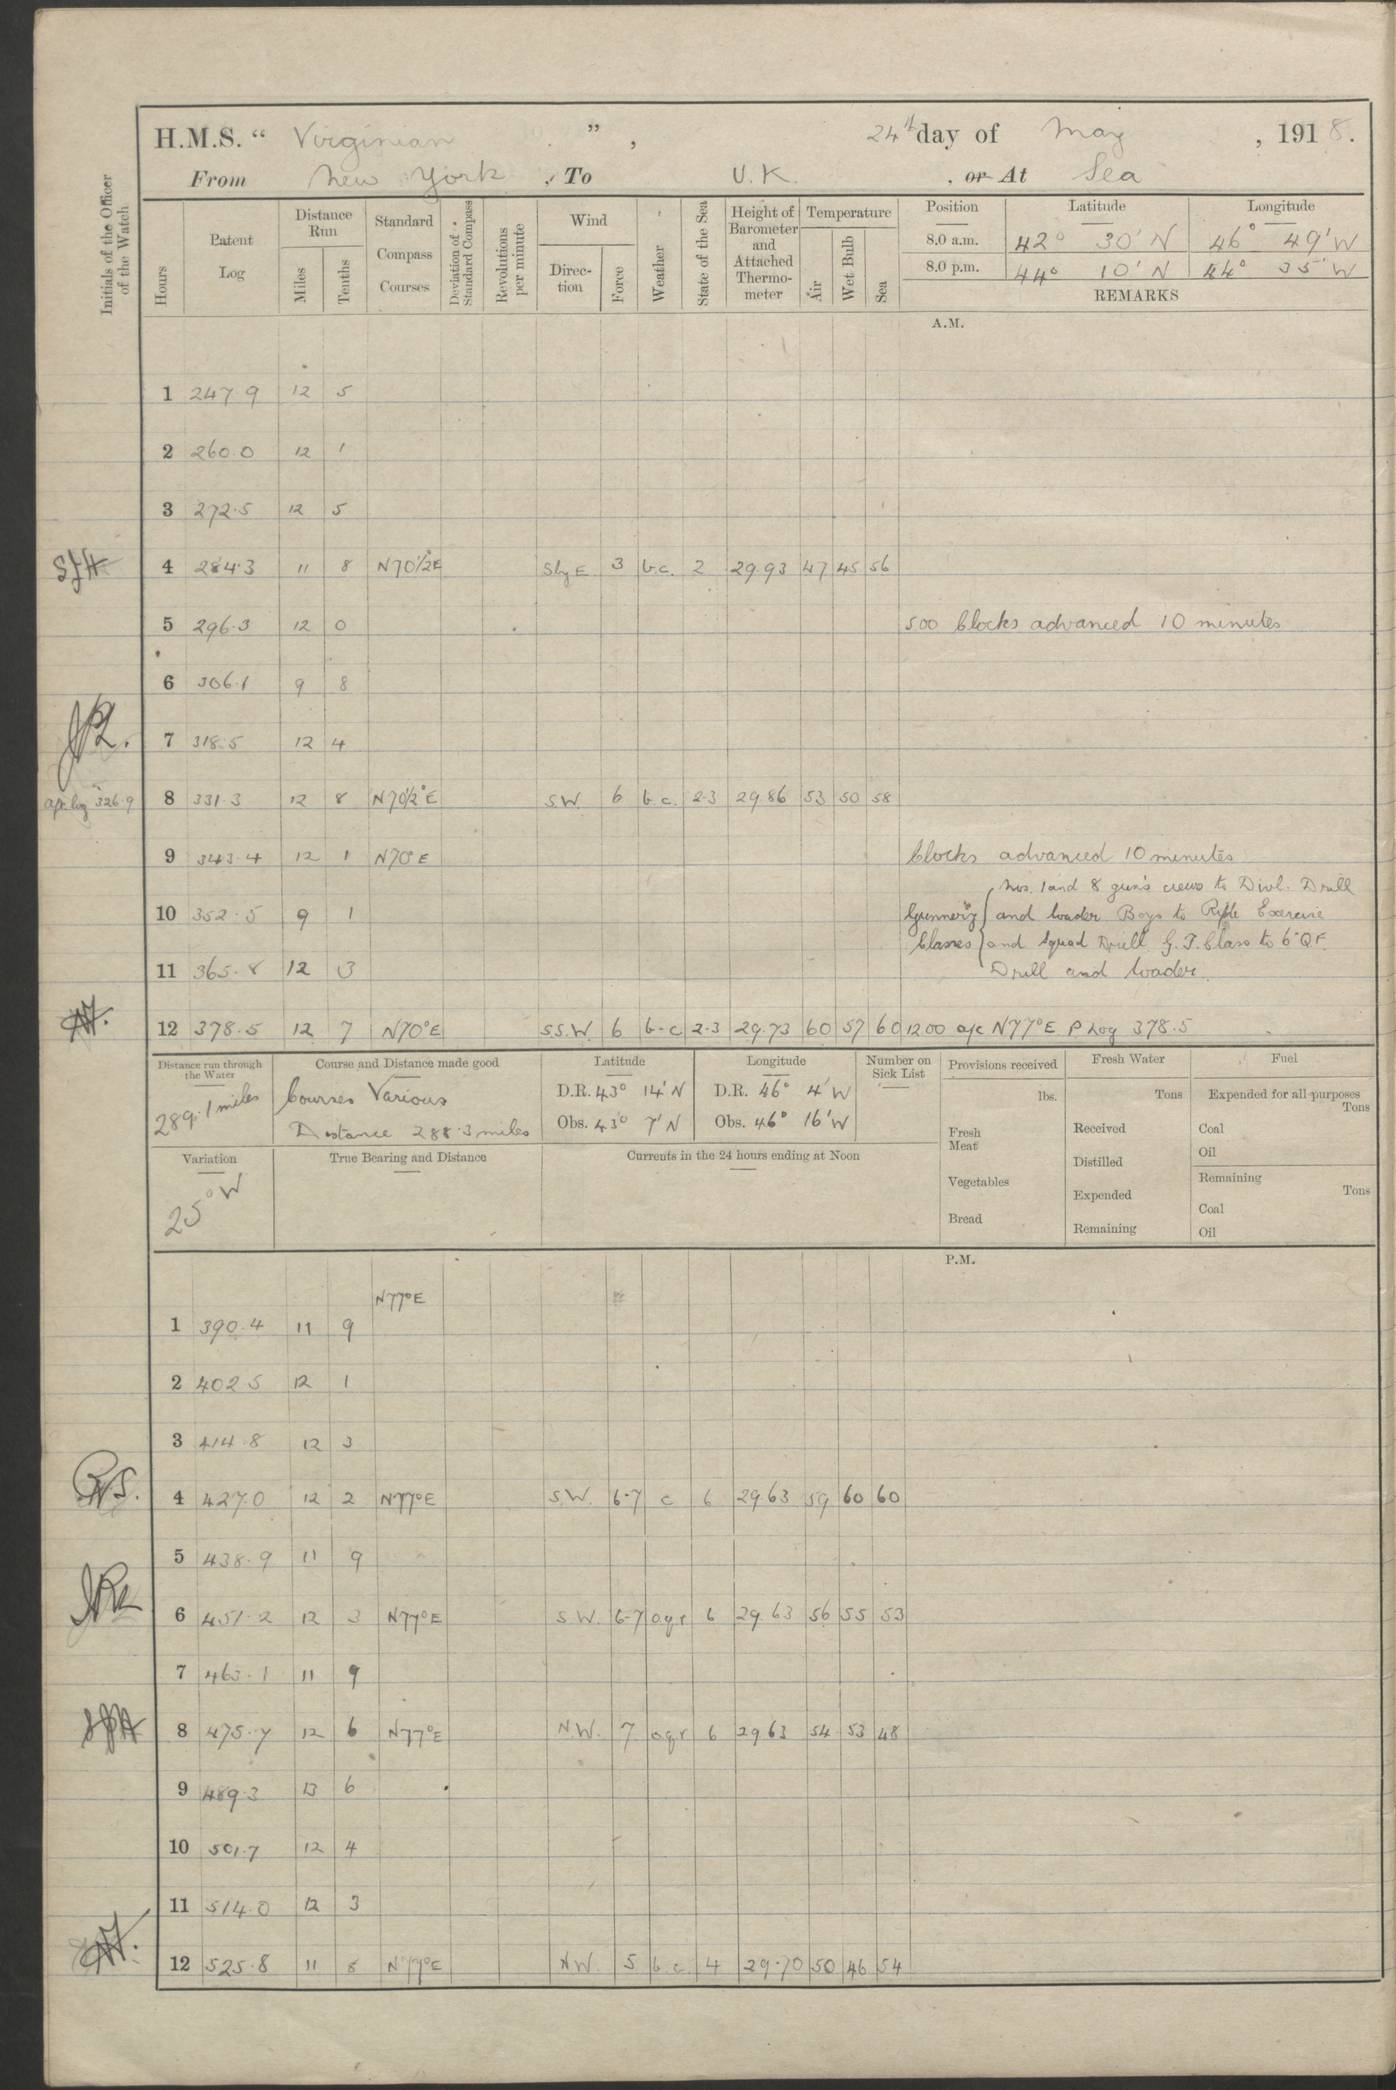 H.M.S. “ Virginian ” , 24th day of May , 1918.
From New York , To U.K. , or At Sea
Initials of the Officer of the Watch
Hours
Patent Log
Distance Run
Miles
Tenths
Standard Compass Courses
Deviation of Standard Compass
Revolutions per minute
Wind
Direction
Force
Weather
State of the Sea
Height of Barometer and Attached Thermometer
Temperature
Air
Wet Bulb
Sea
Position Latitude Longitude
8.0 a.m. 42° 30' N 46° 49' W
8.0 p.m. 44° 10' N 44° 35' W
REMARKS
A.M.
1 247.9 12 5
2 260.0 12 1
3 272.5 12 5
4 284.3 11 8 N70½°E SbyE 3 b.c. 2 29.93 47 45 56
5 296.3 12 0 500 Clocks advanced 10 minutes
6 306.1 9 8
7 318.5 12 4
326.9 8 331.3 12 8 N70½°E S.W. 6 b.c. 2-3 29.86 53 50 58
9 343.4 12 1 N70°E Clocks advanced 10 minutes
Nos. 1 and 8 gun's crews to Divl. Drill
10 352.5 9 1 Gunnery and loader. Boys to Rifle Exercise
Classes and Squad Drill. G.T. Class to 6" QF.
11 365.8 12 3 Drill and loader.
12 378.5 12 7 N70°E S.S.W 6 b-c 2-3 29.73 60 57 60 1200 a/c N77°E P Log 378.5
Distance run through the Water
289.1 miles
Course and Distance made good
Courses Various
Distance 288.3 miles
Latitude
D.R. 43° 14' N
Obs. 43° 7' N
Longitude
D.R. 46° 4' W
Obs. 46° 16' W
Number on Sick List
Provisions received
lbs.
Fresh Meat
Vegetables
Bread
Fresh Water
Tons
Received
Distilled
Expended
Remaining
Fuel
Expended for all purposes
Tons
Coal
Oil
Remaining
Tons
Coal
Oil
Variation
25° W
True Bearing and Distance
Currents in the 24 hours ending at Noon
P.M.
N77°E
1 390.4 11 9
2 402.5 12 1
3 414.8 12 3
4 427.0 12 2 N77°E S.W. 6-7 c 6 29.63 59 60 60
5 438.9 11 9
6 451.2 12 3 N77°E S.W. 6-7 o.q.r 6 29.63 56 55 53
7 463.1 11 9
8 475.7 12 6 N77°E N.W. 7 o.q.r 6 29.63 54 53 48
9 489.3 13 6
10 501.7 12 4
11 514.0 12 3
12 525.8 11 8 N77°E N.W. 5 b.c. 4 29.70 50 46 54